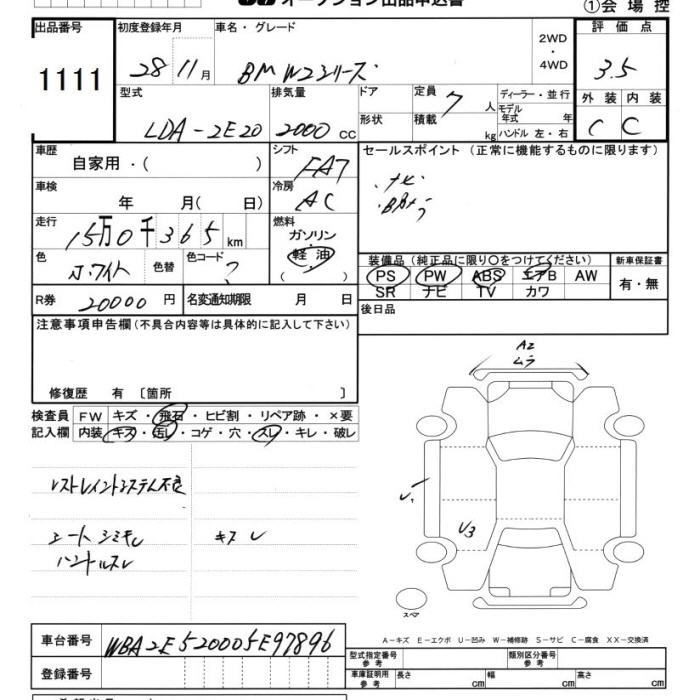 オークション出品申込書
①会場控
出品番号 1111
初度登録年月 28 11月
車名・グレード BMW2シリーズ
2WD・4WD
評価点 3.5
型式 LDA-2E20
排気量 2000 cc
ドア
形状
定員 7 人
積載 kg
ディーラー・並行
モデル年式 年
ハンドル 左・右
外装 C 内装 C
車歴 自家用・( )
シフト FA7
セールスポイント (正常に機能するものに限ります)
・ナビ
車検 年 月( 日)
冷房 AC
走行 15万0千365km
燃料 ガソリン
軽油
( )
色 色替 色コード ?
装備品 (純正品に限り〇をつけてください)
新車保証書
PS PW ABS エアB AW
SR ナビ TV カワ
有・無
R券 20000円
名変通知期限 月 日
後日品
注意事項申告欄 (不具合内容等は具体的に記入して下さい)
修復歴 有 〔箇所 〕
A2
ムラ
検査員 FW キズ・飛石・ヒビ割・リペア跡・×要
記入欄 内装 キズ・汚レ・コゲ・穴・スレ・キレ・破レ
レストレイントシステム不良
シート シミキレ
キズ レ
ハンドルスレ
U1
U3
スペア
A-キズ E-エクボ U-凹み W-補修跡 S-サビ C-腐食 XX-交換済
車台番号 WBA2E520005E97896
登録番号
型式指定番号 参考
類別区分番号 参考
車庫証明用 参考 長さ cm 幅 cm 高さ cm